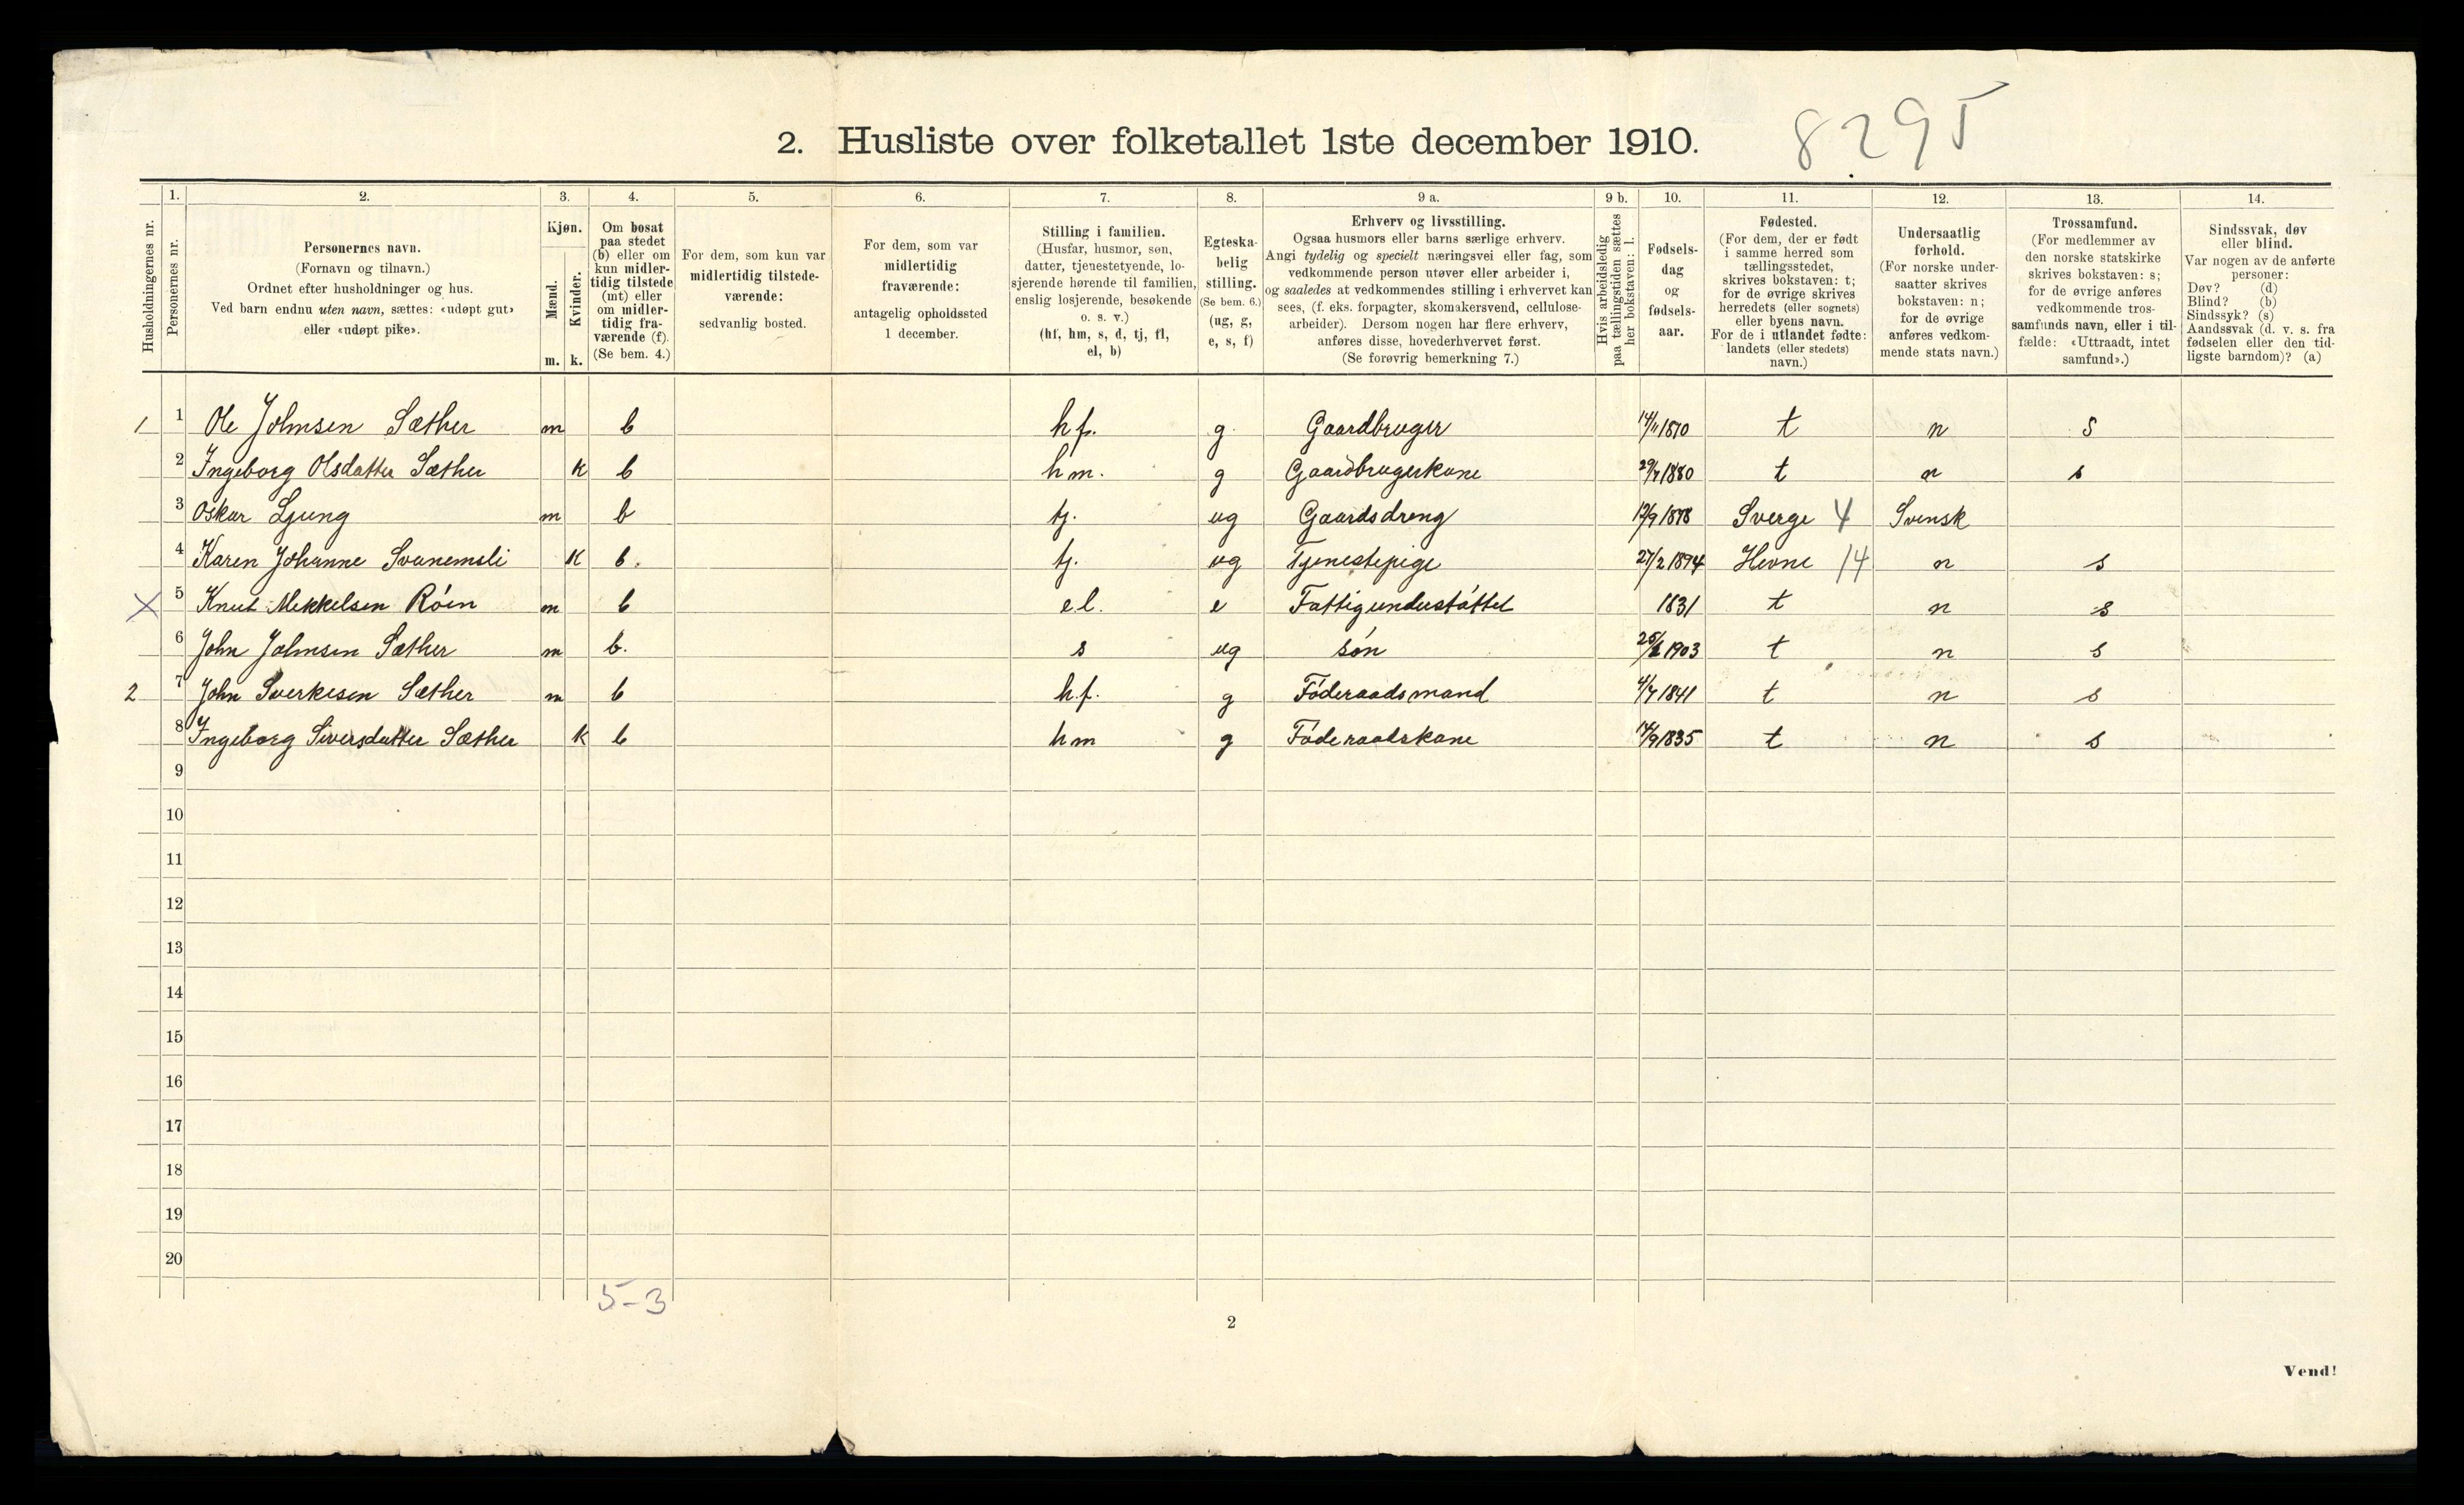 2. Husliste over folketallet 1ste december 1910.
8295
1.
2.
3.
4.
5.
6.
7.
8.
9 a.
9 b.
10.
11.
12.
13.
14.
Husholdningernes nr.
Personernes nr.
Personernes navn.
(Fornavn og tilnavn.)
Ordnet efter husholdninger og hus.
Ved barn endnu uten navn, sættes: «udøpt gut»
eller «udøpt pike».
Kjøn.
Mænd.
Kvinder.
m. k.
Om bosat
paa stedet
(b) eller om
kun midler-
tidig tilstede
(mt) eller
om midler-
tidig fra-
værende (f).
(Se bem. 4.)
For dem, som kun var
midlertidig tilstede-
værende:
sedvanlig bosted.
For dem, som var
midlertidig
fraværende:
antagelig opholdssted
1 december.
Stilling i familien.
(Husfar, husmor, søn,
datter, tjenestetyende, lo-
sjerende hørende til familien,
enslig losjerende, besøkende
o. s. v.)
(hf, hm, s, d, tj, fl,
el, b)
Egteska-
belig
stilling.
(Se bem. 6.)
(ug, g,
e, s, f)
Erhverv og livsstilling.
Ogsaa husmors eller barns særlige erhverv.
Angi tydelig og specielt næringsvei eller fag, som
vedkommende person utøver eller arbeider i,
og saaledes at vedkommendes stilling i erhvervet kan
sees, (f. eks. forpagter, skomakersvend, cellulose-
arbeider). Dersom nogen har flere erhverv,
anføres disse, hovederhvervet først.
(Se forøvrig bemerkning 7.)
Hvis arbeidsledig
paa tællingstiden sættes
her bokstaven: l.
Fødsels-
dag
og
fødsels-
aar.
Fødested.
(For dem, der er født
i samme herred som
tællingsstedet,
skrives bokstaven: t;
for de øvrige skrives
herredets (eller sognets)
eller byens navn.
For de i utlandet fødte:
landets (eller stedets)
navn.)
Undersaatlig
forhold.
(For norske under-
saatter skrives
bokstaven: n;
for de øvrige
anføres vedkom-
mende stats navn.)
Trossamfund.
(For medlemmer av
den norske statskirke
skrives bokstaven: s;
for de øvrige anføres
vedkommende tros-
samfunds navn, eller i til-
fælde: «Uttraadt, intet
samfund».)
Sindssvak, døv
eller blind.
Var nogen av de anførte
personer:
Døv? (d)
Blind? (b)
Sindssyk? (s)
Aandssvak (d. v. s. fra
fødselen eller den tid-
ligste barndom)? (a)
1 1 Ole Johnsen Sæther m b hf. g. Gaardbruger 14/11 1870 t n s
2 Ingeborg Olsdatter Sæther k b hm. g Gaardbrugerkone 29/7 1880 t n s
3 Oskar Ljung m b tj. ug Gaardsdreng 12/9 1878 Sverge 4 Svensk
4 Karen Johanne Svanemsli k b. tj. ug Tjenestepige 27/2 1894 Hevne 14 n s
X 5 Knut Mekkelsen Röen m b el. e Fattigunderstöttet 1831 t n s
6 John Johnsen Sæther m b. s ug sön 1903 t n s
2 7 John Sverkesen Sæther m b h.f. g Föderaadsmand 4/7 1841 t n s
8 Ingeborg Siversdatter Sæther k b hm g Föderaadskone 14/9 1835 t n s
9
10
11
12
13
14
15
16
17
18
19
20
5-3
2
Vend!